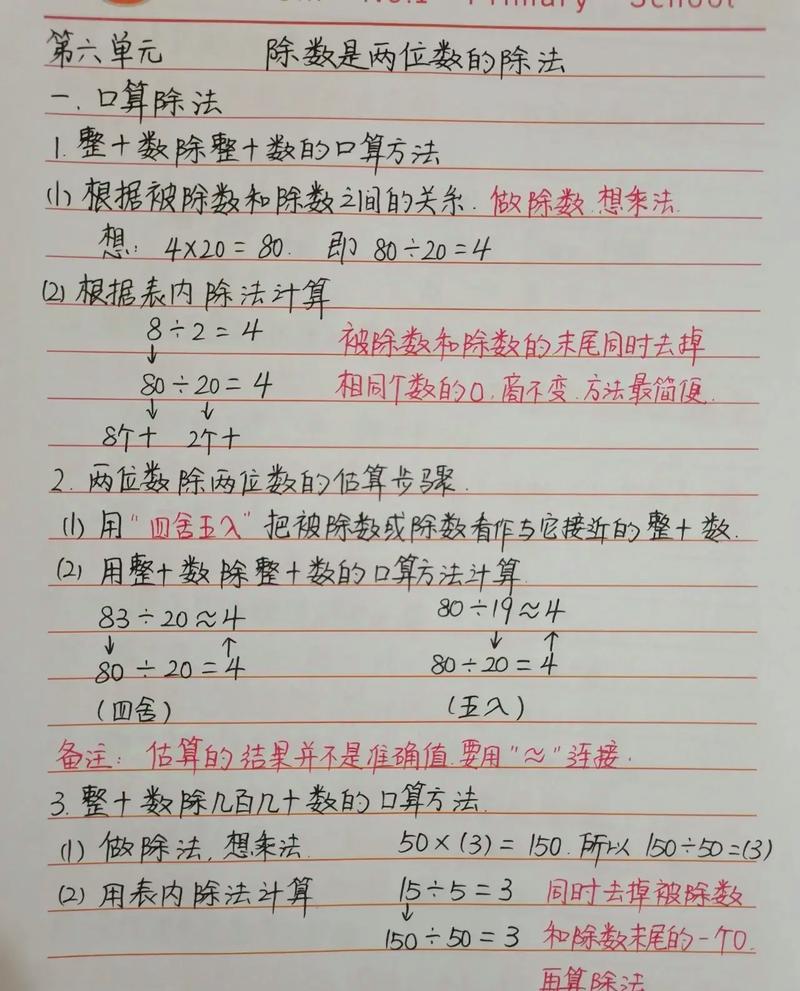 No.1 Primary School
第六单元 除数是两位数的除法
一.口算除法
1.整十数除整十数的口算方法
(1)根据被除数和除数之间的关系.做除数.想乘法.
想: 4×20=80. 即 80÷20=4
(2)根据表内除法计算
8÷2=4
↓
被除数和除数的末尾同时去掉
80÷20=4
相同个数的0,商不变.方法最简便.
↓ ↓
8个十 2个十
2.两位数除两位数的估算步骤.
(1)用"四舍五入"把被除数或除数看作与它接近的整十数.
(2)用整十数除整十数的口算方法计算.
83÷20≈4 80÷19≈4
↓ ↑ ↓ ↑
80÷20=4 80÷20=4
(四舍) (五入)
备注:估算的结果并不是准确值.要用"≈"连接.
3.整十数除几百几十数的口算方法.
(1)做除法,想乘法. 50×(3)=150.所以 150÷50=(3)
(2)用表内除法计算 15÷5=3 同时去掉被除数
↓
150÷50=3 和除数末尾的一个0.
再算除法